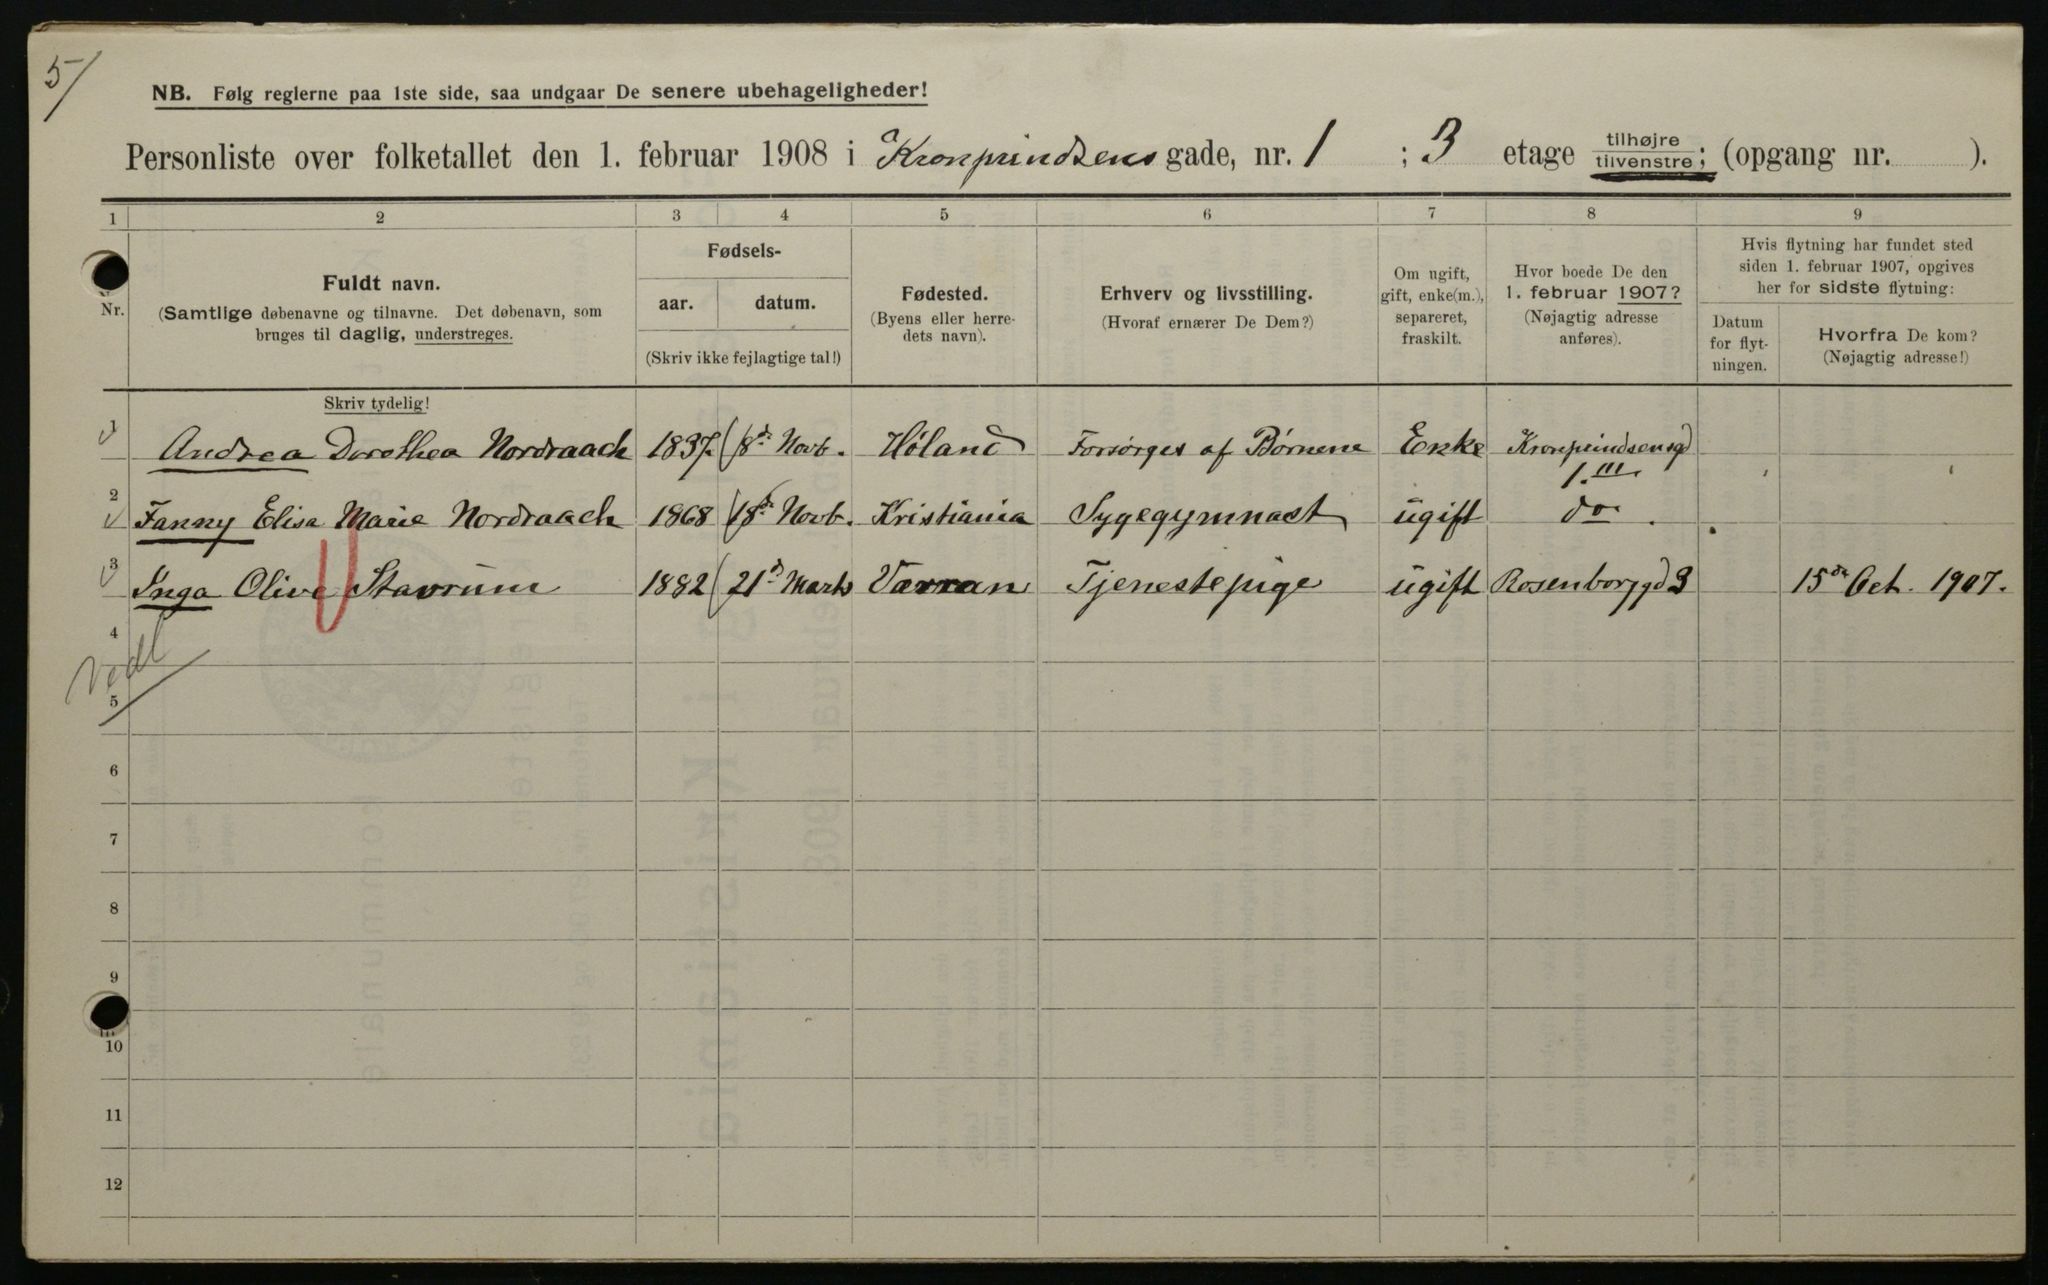 5/
NB. Følg reglerne paa 1ste side, saa undgaar De senere ubehageligheder!
Personliste over folketallet den 1. februar 1908 i Kronprindsens gade, nr. 1 ; 3 etage tilhøjre tilvenstre; (opgang nr. ).
1 2 3 4 5 6 7 8 9
Nr.
Fuldt navn.
(Samtlige døbenavne og tilnavne. Det døbenavn, som
bruges til daglig, understreges.
Fødsels-
aar. datum.
(Skriv ikke fejlagtige tal!)
Fødested.
(Byens eller herre-
dets navn).
Erhverv og livsstilling.
(Hvoraf ernærer De Dem?)
Om ugift,
gift, enke(m.),
separeret,
fraskilt.
Hvor boede De den
1. februar 1907?
(Nøjagtig adresse
anføres).
Hvis flytning har fundet sted
siden 1. februar 1907, opgives
her for sidste flytning:
Datum
for flyt-
ningen.
Hvorfra De kom?
(Nøjagtig adresse!)
Skriv tydelig!
1 Andrea Dorothea Nordraach 1837 8de Novb. Høland Forsørges af Børnene Enke Kronprindsensgd
1.III
2 Fanny Elisa Marie Nordraach 1868 18de Novb. Kristiania Sygegymnast ugift do
3 Inga Olive Stavrum 1882 21d Marts Værran Tjenestepige ugift Rosenborggd 3 15de Oct. 1907.
4
5
6
7
8
9
10
11
12